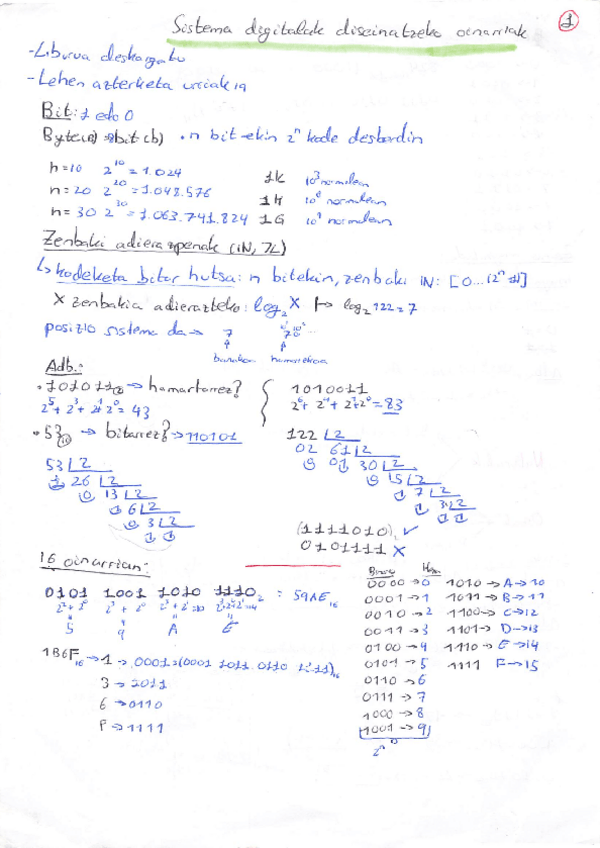 Sistema digitalak diseinatzeko oinarriak
1
-Liburua deskargatu
-Lehen azterketa urriak 19
Bit: 1 edo 0
Byte(B) bit(b) • n bit-ekin 2^n kode desberdin
n=10 2^10 = 1.024 1K 10^3 normalean
n=20 2^20 = 1.048.576 1M 10^6 normalean
n=30 2^30 = 1.063.741.824 1G 10^9 normalean
Zenbaki adierazpenak (IN, ZL)
↳ kodeketa bitar hutsa: n bitekin, zenbaki IN: [0...(2^n-1)]
X zenbakia adierazteko: log2 X ↦ log2 122 = 7
posizio sistema da → 7
banakoa hamarrekoa
Adb.:
• 101011(2 → hamartarrez?
2^5 + 2^3 + 2^1 + 2^0 = 43
1010011
2^6 + 2^4 + 2^1 + 2^0 = 83
• 53(10 → bitarrez? → 110101
53 | 2
1 26 | 2
0 13 | 2
1 6 | 2
0 3 | 2
1 1
122 | 2
02 61 | 2
0 01 30 | 2
0 15 | 2
1 7 | 2
1 3 | 2
1 1
(1111010)2 ✓
0101111 X
16 oinarrian:
0101 1001 1010 1110 2 = 59AE 16
5 9 A E
1B6F 16 → 1 → 0001 = (0001 1011 0110 1111)
3 → 1011
6 → 0110
F → 1111
Binario Hexa
0000 → 0 1010 → A → 10
0001 → 1 1011 → B → 11
0010 → 2 1100 → C → 12
0011 → 3 1101 → D → 13
0100 → 4 1110 → E → 14
0101 → 5 1111 F → 15
0110 → 6
0111 → 7
1000 → 8
1001 → 9